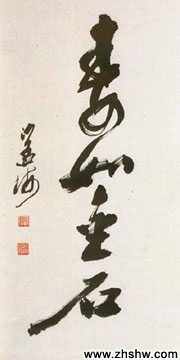 寿如金石
www.zhshw.com